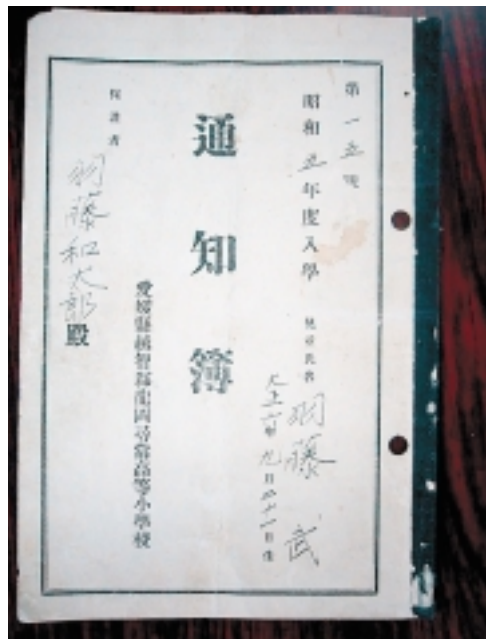 第一五號
昭和五年度入學
兒童氏名 羽藤 武
大正 年九月 十一日生
通知簿
愛媛縣越智郡龍岡尋常高等小學校
保護者
羽藤和太郎殿